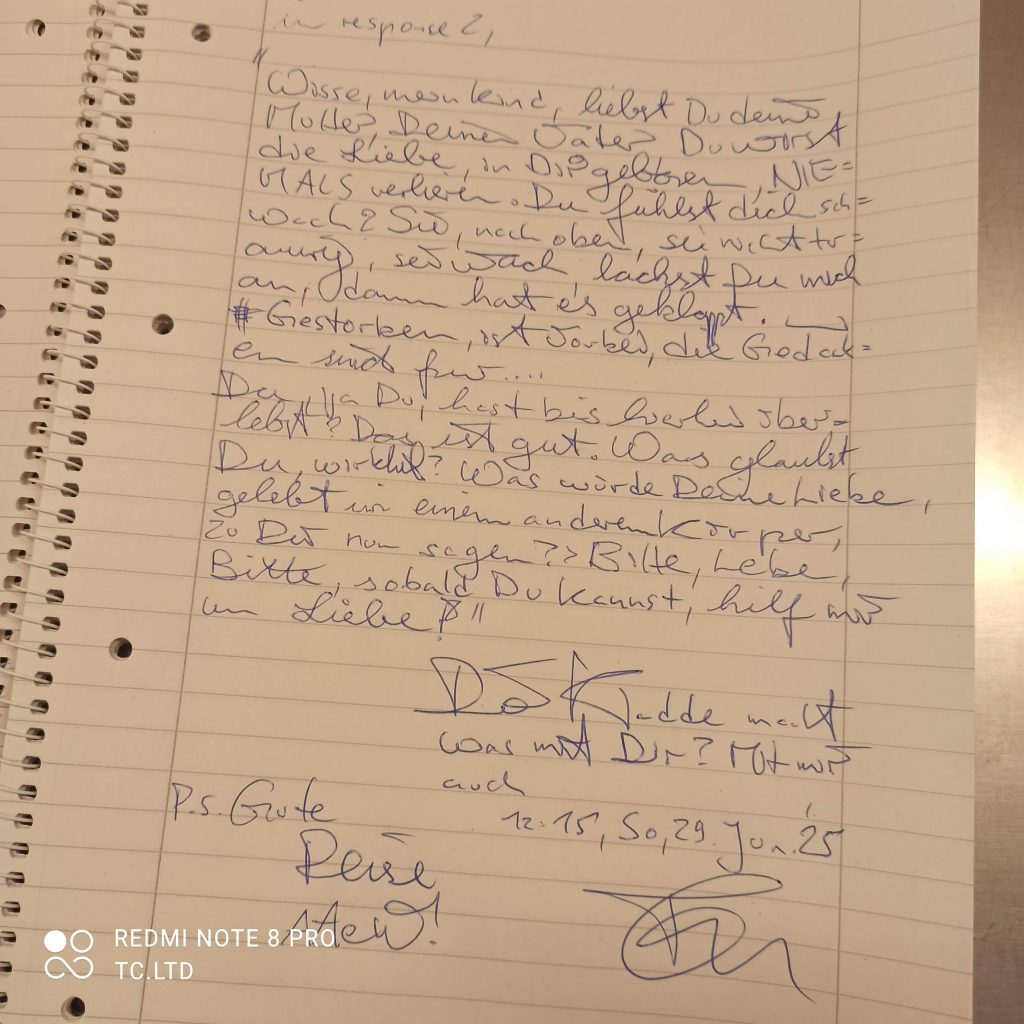 in response 2,
"
Wisse, mein kind, liebst Du deine
Mutter, Deinen Vater Du wirst
die Liebe, in Dir geboren, NIE=
MALS verlieren. Du fühlst dich sch=
wach? Sie, nach oben, sei nicht tr=
aurig, sei wach lächst Du mich
an, dann hat es geklappt.
# Gestorben, ist vorbei, die Gedak=
en sind frei....
Du, ja Du, hast bis hierhin über=
lebt? Das ist gut. Was glaubst
Du, wirklich? Was würde Deine Liebe,
gelebt in einem anderen Körper,
zu Dir nun sagen?? Bitte, Lebe,
Bitte, sobald Du kannst, hilf mir
in Liebe!"
Die Kladde macht
was mit Dir? Mit mir
auch
P.S. Gute
12:15, So, 29. Jun. 25
Reise
REDMI NOTE 8 PRO
TC.LTD